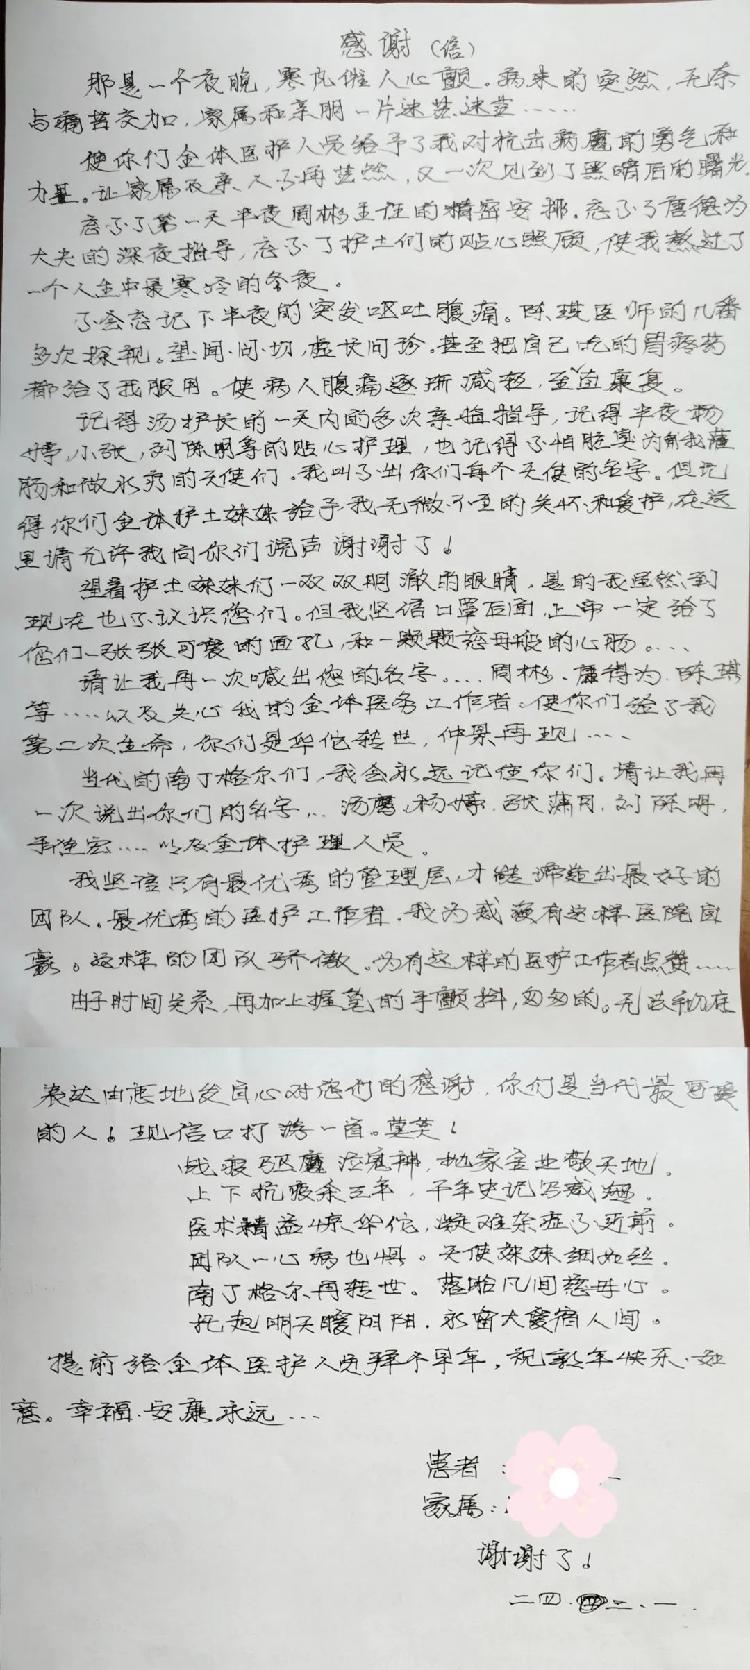 感谢(信)
那是一个夜晚，寒风催人心颤。病来的突然，无奈
与痛苦交加，家属和亲朋一片迷茫迷茫……
使你们全体医护人员给予了我对抗击病魔的勇气和
力量。让家属及亲人不再茫然，又一次见到了黑暗后的曙光。
忘不了第一天半夜周彬主任的精密安排，忘不了唐德为
大夫的深夜指导，忘不了护士们的贴心照顾，使我熬过了
一个人生中最寒冷的冬夜。
不会忘记下半夜的突发呕吐腹痛。陈琪医师的几番
多次探视。望.闻.问.切，虚长问珍.甚至把自己吃的胃疼药
都给了我服用。使病人腹痛逐渐减轻，至直康复。
记得汤护长的一天内的多次亲临指导，记得半夜杨
婷，小张，刘陈明等的贴心护理，也记得不怕脏臭为我灌
肠和做水疗的天使们，我叫不出你们每个天使的名字。但记
得你们全体护士妹妹给予我无微不至的关怀和爱护，在这
里请允许我向你们说声谢谢了！
望着护士妹妹们一双双明澈的眼睛，是的我虽然到
现在也不认识您们。但我坚信口罩后面，上帝一定给了
您们一张张可爱的面孔，和一颗颗慈母般的心肠。...
请让我再一次喊出您的名字....周彬.唐得为.陈琪
等....以及关心我的全体医务工作者。使你们给了我
第二次生命，你们是华佗转世，仲景再现....
当代的南丁格尔们，我会永远记住你们。请让我再
一次说出你们的名字...汤鹰，杨婷.张蒲月.刘陈明，
....以及全体护理人员。
我坚信只有最优秀的管理层，才能缔造出最好的
团队。最优秀的医护工作者，我为咸有这样医院自
豪。这样的团队骄傲。为有这样的医护工作者点赞.....
由于时间关系，再加上握笔的手颤抖，匆匆的。无法
表达由衷地发自心对您们的感谢，你们是当代最可爱
的人！现信口打游一首。莫笑！
战疫驱魔泣鬼神，抛家舍业敬天地。
上下抗疫余三年，千年史记写咸。
医术精益惊华佗，疑难杂症不近前。
团队一心病也惧。天使妹妹细如丝.
南丁格尔再转世。落貽凡间慈母心。
托起明天暖阴阳.永留大爱宿人间。
提前给全体医护人员拜个早年，祝新年快乐.如
意。幸福.安康永远...
患者：
家属：
谢谢了！
二四.二.一.